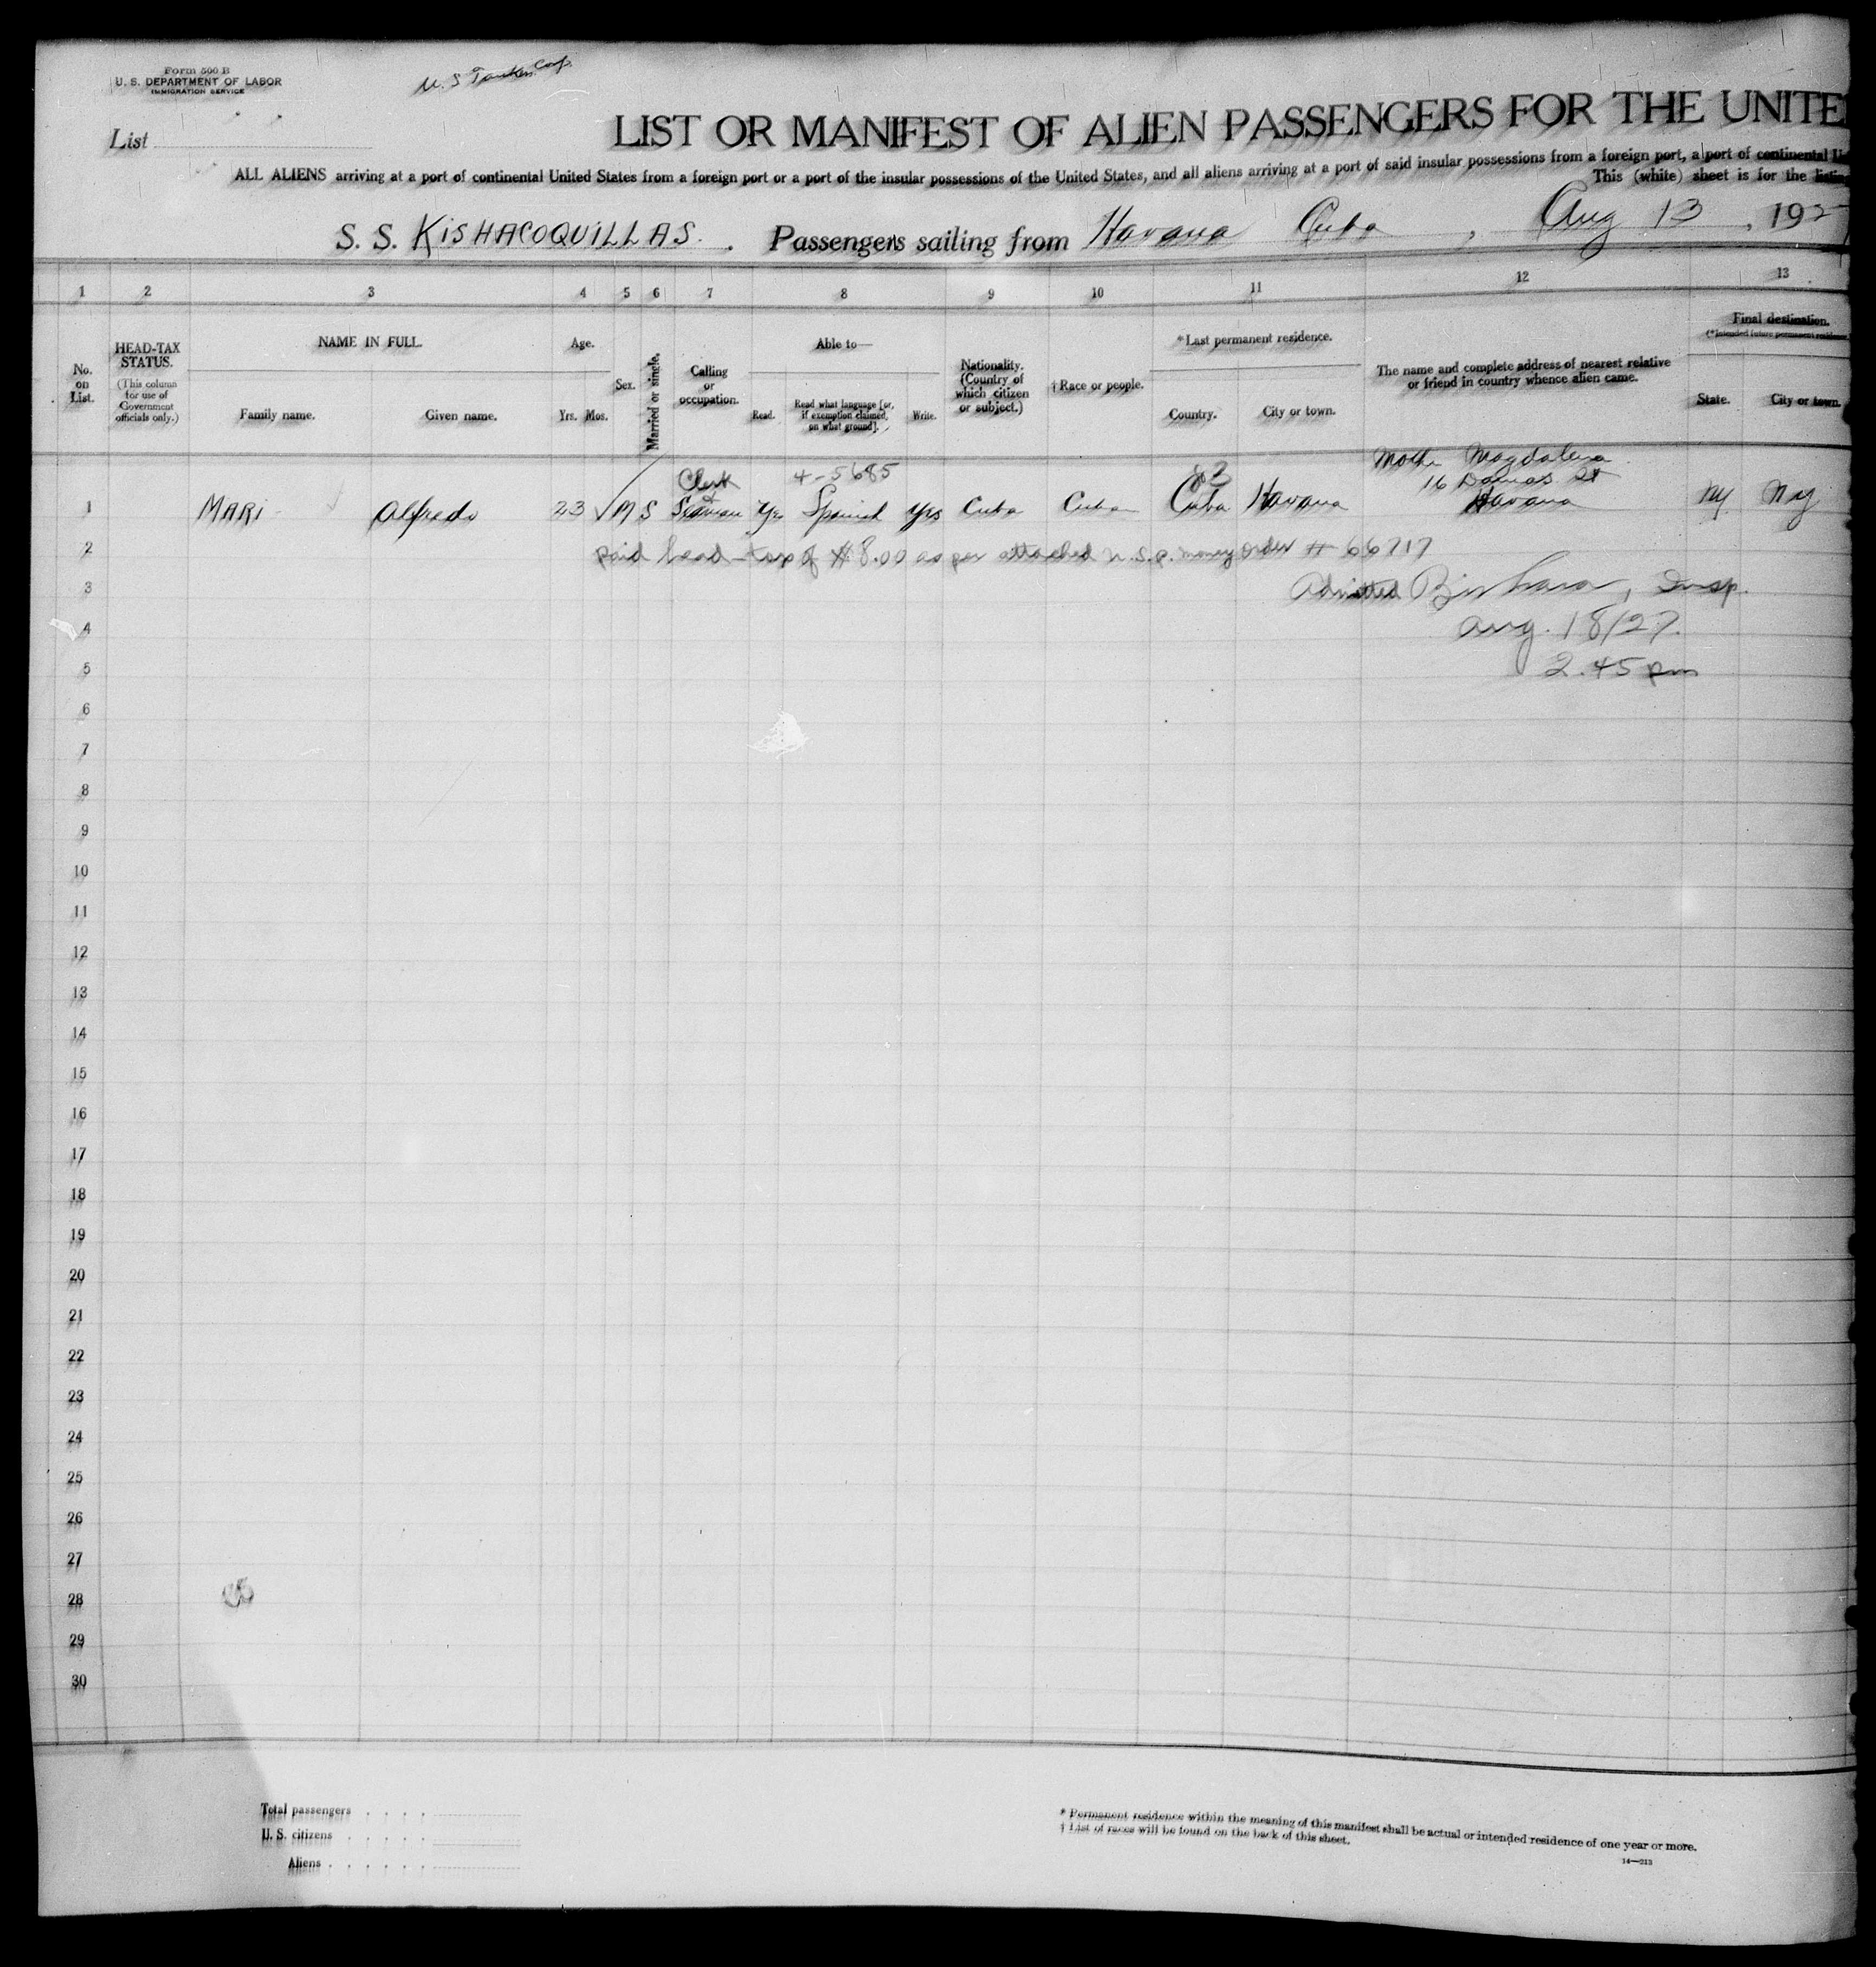 Form 500 B
U. S. DEPARTMENT OF LABOR
IMMIGRATION SERVICE
U.S Tanker Corp.
List
LIST OR MANIFEST OF ALIEN PASSENGERS FOR THE UNITE
ALL ALIENS arriving at a port of continental United States from a foreign port or a port of the insular possessions of the United States, and all aliens arriving at a port of said insular possessions from a foreign port, a port of continental U
This (white) sheet is for the listing
S. S. KISHACOQUILLAS. Passengers sailing from Havana Cuba , Aug 13 , 192
1 2 3 4 5 6 7 8 9 10 11 12 13
No. on List.
HEAD-TAX STATUS.
(This column for use of Government officials only.)
NAME IN FULL.
Family name. Given name.
Age.
Yrs. Mos.
Sex.
Married or single.
Calling or occupation.
Able to—
Read. Read what language [or, if exemption claimed, on what ground]. Write.
Nationality. (Country of which citizen or subject.)
†Race or people.
*Last permanent residence.
Country. City or town.
The name and complete address of nearest relative or friend in country whence alien came.
Final destination.
(*Intended future permanent residence
State. City or town.
Mother Magdalena
Clerk 4-5685 16 Damas St
1 MARI Alfredo 23 M S Seaman Yes Spanish Yes Cuba Cuban Cuba Havana Havana NY NY
2 paid head-tax of $8.00 as per attached U.S.P. money order # 66717
3 Admitted Insp.
4 Aug. 18/27.
5 2.45 pm
6
7
8
9
10
11
12
13
14
15
16
17
18
19
20
21
22
23
24
25
26
27
28
29
30
Total passengers . . . .
U. S. citizens . . . . .
Aliens . . . . . .
* Permanent residence within the meaning of this manifest shall be actual or intended residence of one year or more.
† List of races will be found on the back of this sheet.
14—213